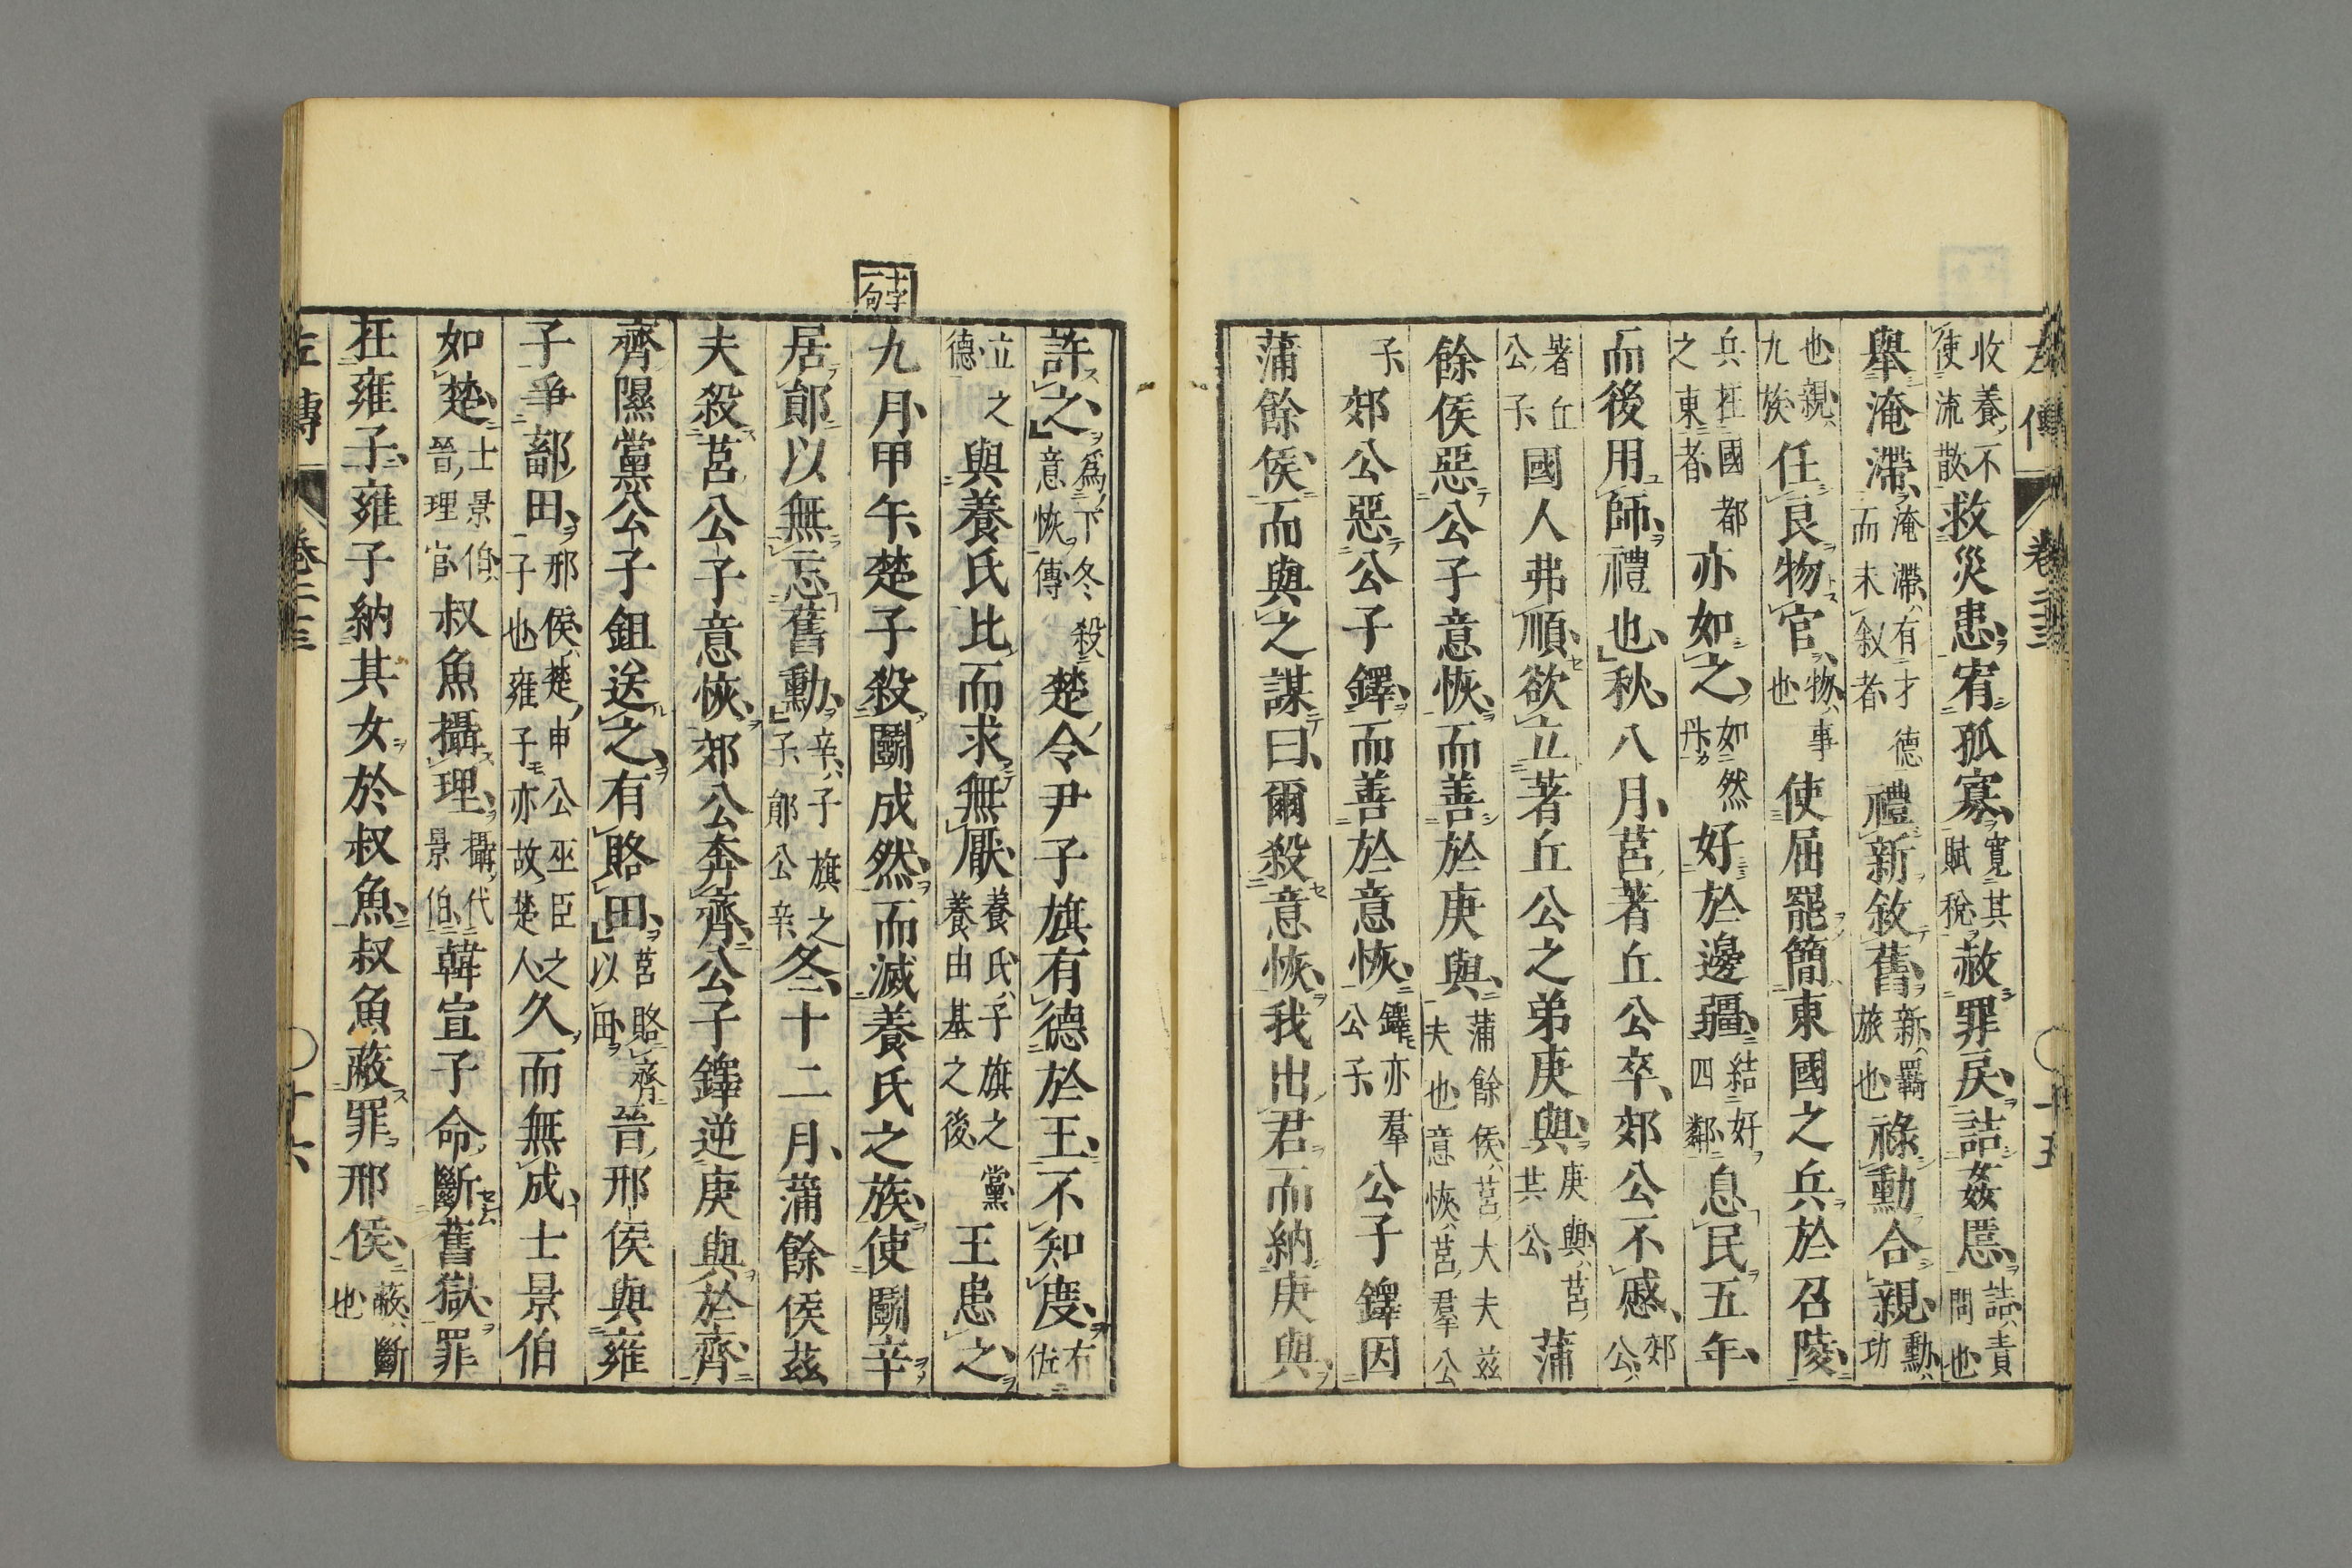 左傳 卷二十三 ○ 十五
收養不使流散救災患宥孤寡寬其賦稅赦罪戾詰姦慝詰責問也
舉淹滯淹滯有才德而未叙者禮新敘舊新羇旅也祿勳合親勳功
也親九族任良物官物事也使屈罷簡東國之兵於召陵
兵在國都之東者亦如之如然丹好於邊疆結好四鄰息民五年
而後用師禮也秋八月莒著丘公卒郊公不慼郊公
著丘公子國人弗順欲立著丘公之弟庚與庚與莒共公蒲
餘侯惡公子意恢而善於庚與蒲餘侯莒大夫茲夫也意恢莒羣公
子郊公惡公子鐸而善於意恢鐸亦羣公子公子鐸因
蒲餘侯而與之謀曰爾殺意恢我出君而納庚與
許之爲下冬殺意恢傳楚令尹子旗有德於王不知度有佐
立之德與養氏比而求無厭養氏子旗之黨養由基之後王患之
十字一句
九月甲午楚子殺鬭成然而滅養氏之族使鬭辛
居鄖以無忘舊勳辛子旗之子鄖公辛冬十二月蒲餘侯茲
夫殺莒公子意恢郊公奔齊公子鐸逆庚與於齊
齊隰黨公子鉏送之有賂田莒賂齊以田晉邢侯與雍
子爭鄐田邢侯楚申公巫臣之子也雍子亦故楚人久而無成士景伯
如楚士景伯晉理官叔魚攝理攝代景伯韓宣子命斷舊獄罪
在雍子雍子納其女於叔魚叔魚蔽罪邢侯蔽斷也
左傳 卷二十三 ○ 十六